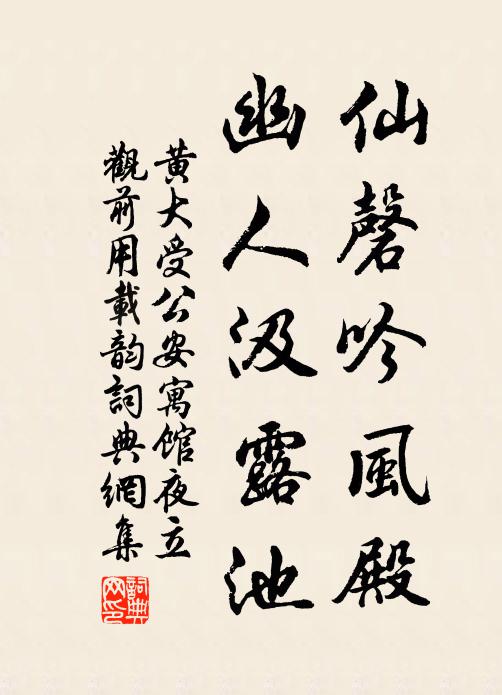 仙磬吟風殿
幽人汲露池
黄大受公安寓馆夜立
觀前用載韵詞典網集
詞典網印